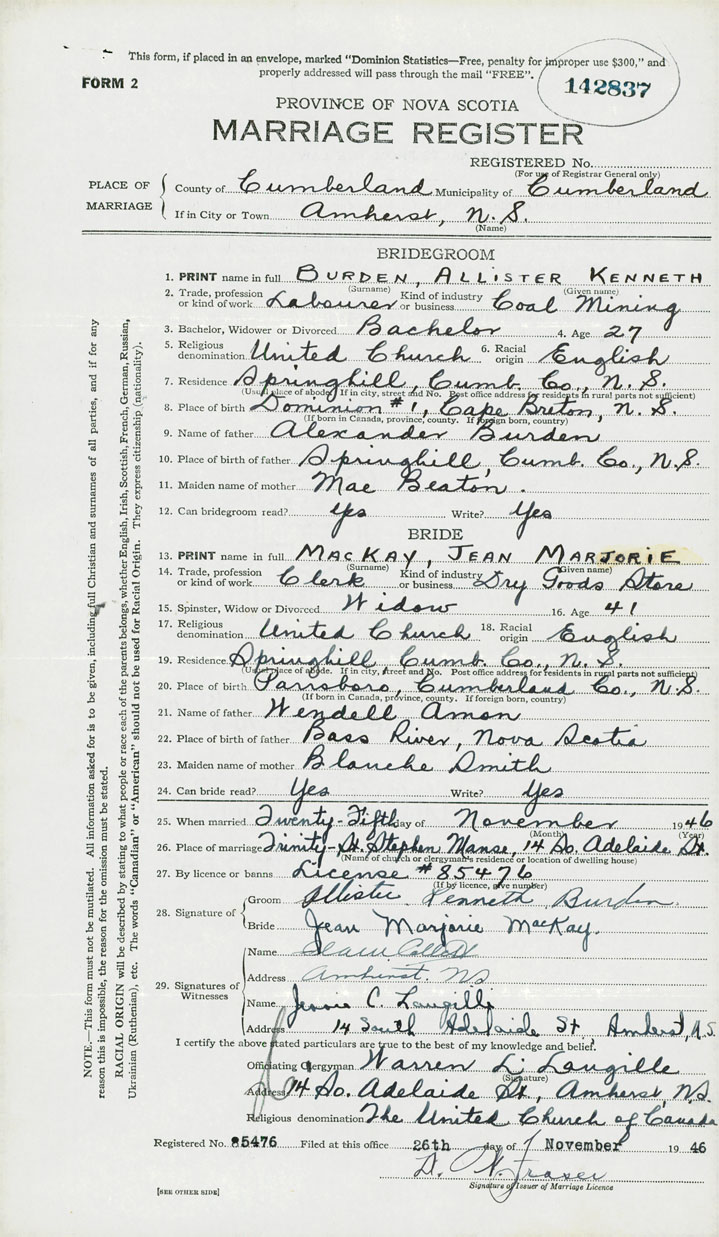 This form, if placed in an envelope, marked "Dominion Statistics—Free, penalty for improper use $300," and
properly addressed will pass through the mail "FREE".
FORM 2
142837
PROVINCE OF NOVA SCOTIA
MARRIAGE REGISTER
REGISTERED No.
(For use of Registrar General only)
PLACE OF MARRIAGE
County of Cumberland Municipality of Cumberland
If in City or Town Amherst, N.S.
(Name)
BRIDEGROOM
1. PRINT name in full BURDEN, ALLISTER KENNETH
(Surname) (Given name)
2. Trade, profession or kind of work Labourer Kind of industry or business Coal Mining
3. Bachelor, Widower or Divorced Bachelor 4. Age 27
5. Religious denomination United Church 6. Racial origin English
7. Residence Springhill, Cumb. Co., N.S.
(Usual place of abode. If in city, street and No. Post office address for residents in rural parts not sufficient)
8. Place of birth Dominion #1, Cape Breton, N.S.
(If born in Canada, province, county. If foreign born, country)
9. Name of father Alexander Burden
10. Place of birth of father Springhill, Cumb. Co., N.S.
11. Maiden name of mother Mae Beaton.
12. Can bridegroom read? Yes Write? Yes
BRIDE
13. PRINT name in full MACKAY, JEAN MARJORIE
(Surname) (Given name)
14. Trade, profession or kind of work Clerk Kind of industry or business Dry Goods Store
15. Spinster, Widow or Divorced Widow 16. Age 41
17. Religious denomination United Church 18. Racial origin English
19. Residence Springhill Cumb. Co., N.S.
(Usual place of abode. If in city, street and No. Post office address for residents in rural parts not sufficient)
20. Place of birth Parrsboro, Cumberland Co., N.S.
(If born in Canada, province, county. If foreign born, country)
21. Name of father Wendell Amon
22. Place of birth of father Bass River, Nova Scotia
23. Maiden name of mother Blanche Smith
24. Can bride read? Yes Write? Yes
25. When married Twenty-Fifth day of November 1946
(Month) (Year)
26. Place of marriage Trinity-St. Stephen Manse, 14 So. Adelaide St.
(Name of church or clergyman's residence or location of dwelling house)
27. By licence or banns License #85476
(If by licence, give number)
28. Signature of
Groom Allister Kenneth Burden.
Bride Jean Marjorie MacKay.
29. Signatures of Witnesses
Name
Address Amherst. NS
Name Jennie C. Langille
Address 14 South Adelaide St, Amherst, N.S.
I certify the above stated particulars are true to the best of my knowledge and belief.
Officiating Clergyman Warren L. Langille
(Signature)
Address 14 So. Adelaide St, Amherst, N.S.
Religious denomination The United Church of Canada
Registered No. 85476 Filed at this office 26th day of November 1946
Fraser
Signature of Issuer of Marriage Licence
[SEE OTHER SIDE]
NOTE.—This form must not be mutilated. All information asked for is to be given, including full Christian and surnames of all parties, and if for any
reason this is impossible, the reason for the omission must be stated.
RACIAL ORIGIN will be described by stating to what people or race each of the parents belongs, whether English, Irish, Scottish, French, German, Russian,
Ukrainian (Ruthenian), etc. The words "Canadian" or "American" should not be used for Racial Origin. They express citizenship (nationality).